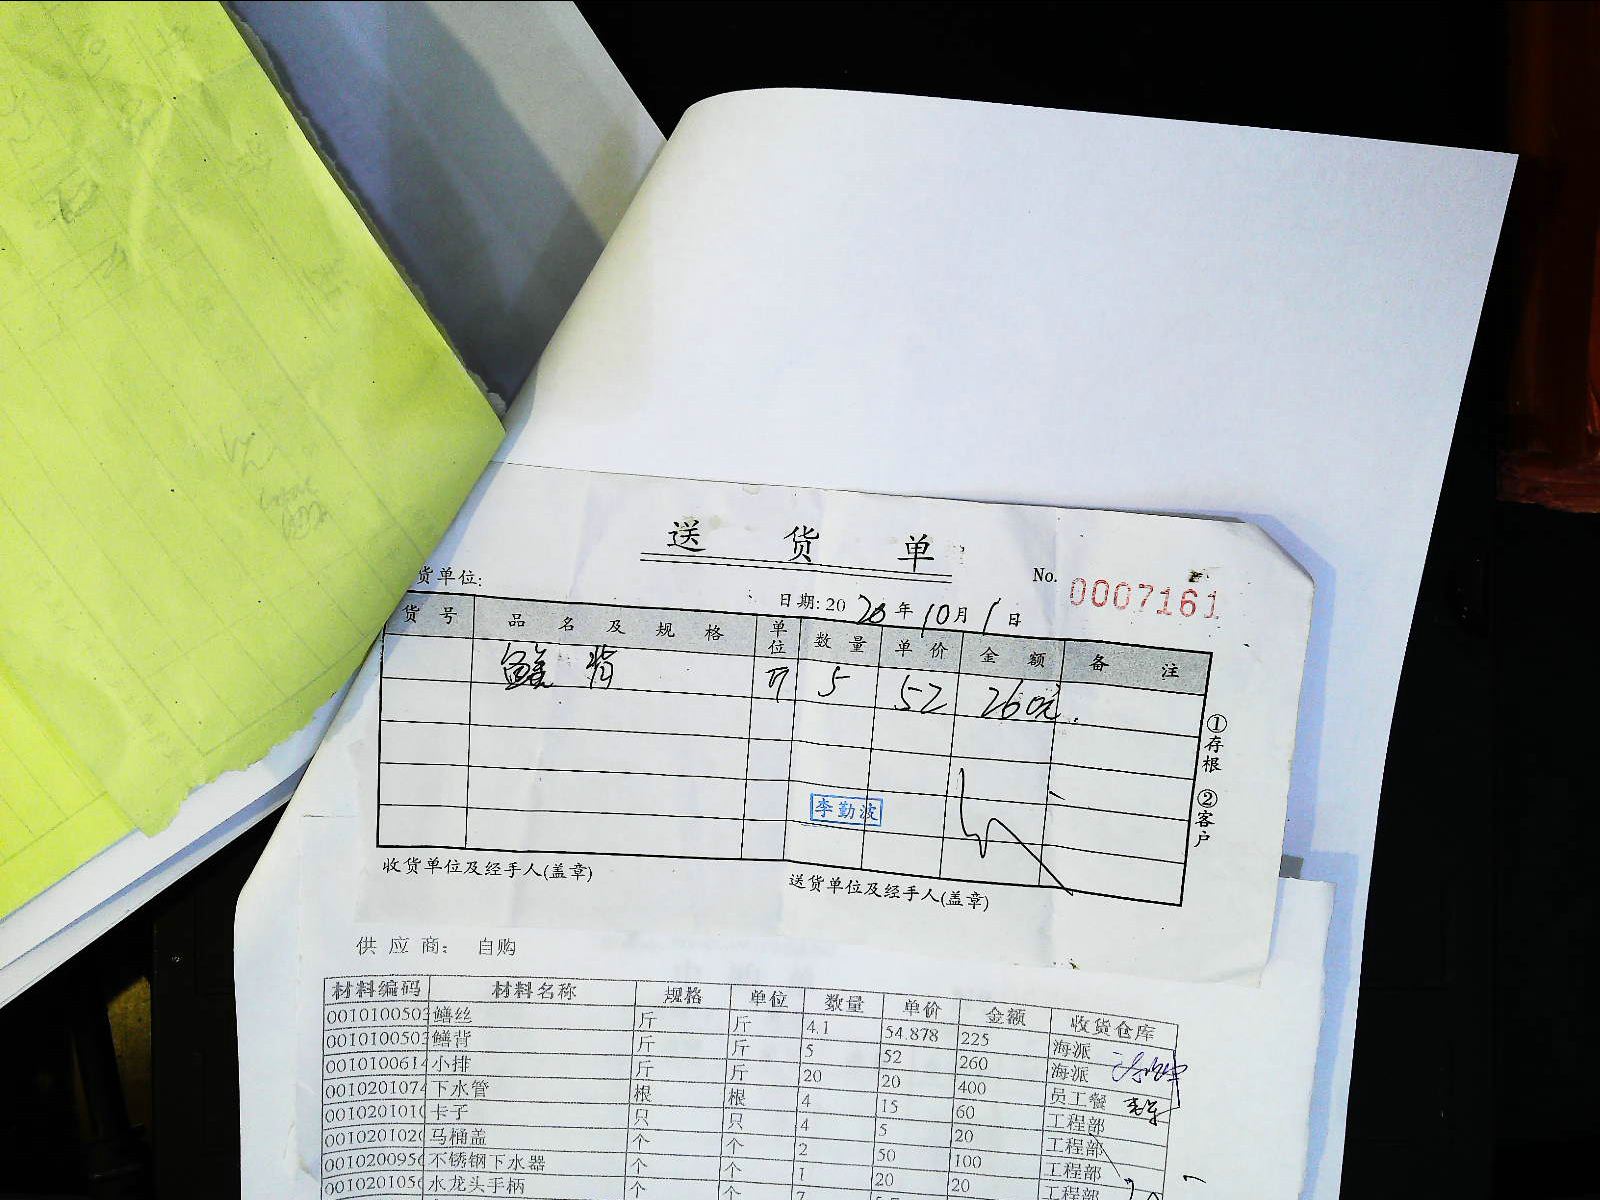 送 货 单
货单位:
No. 0007161
日期: 20 20 年 10 月 1 日
货 号 品 名 及 规 格 单位 数 量 单 价 金 额 备 注
鳝 背 斤 5 52 260元.
①存根 ②客户
李勤波
收货单位及经手人(盖章)
送货单位及经手人(盖章)
供 应 商: 自购
材料编码 材料名称 规格 单位 数量 单价 金额 收货仓库
0010100503 鳝丝 斤 斤 4.1 54.878 225 海派
0010100503 鳝背 斤 斤 5 52 260 海派
0010100614 小排 斤 斤 20 20 400 员工餐
0010201074 下水管 根 根 4 15 60 工程部
001020101 卡子 只 只 4 5 20 工程部
0010201020 马桶盖 个 个 2 50 100 工程部
0010200956 不锈钢下水器 个 个 1 20 20 工程部
0010201056 水龙头手柄 个 个